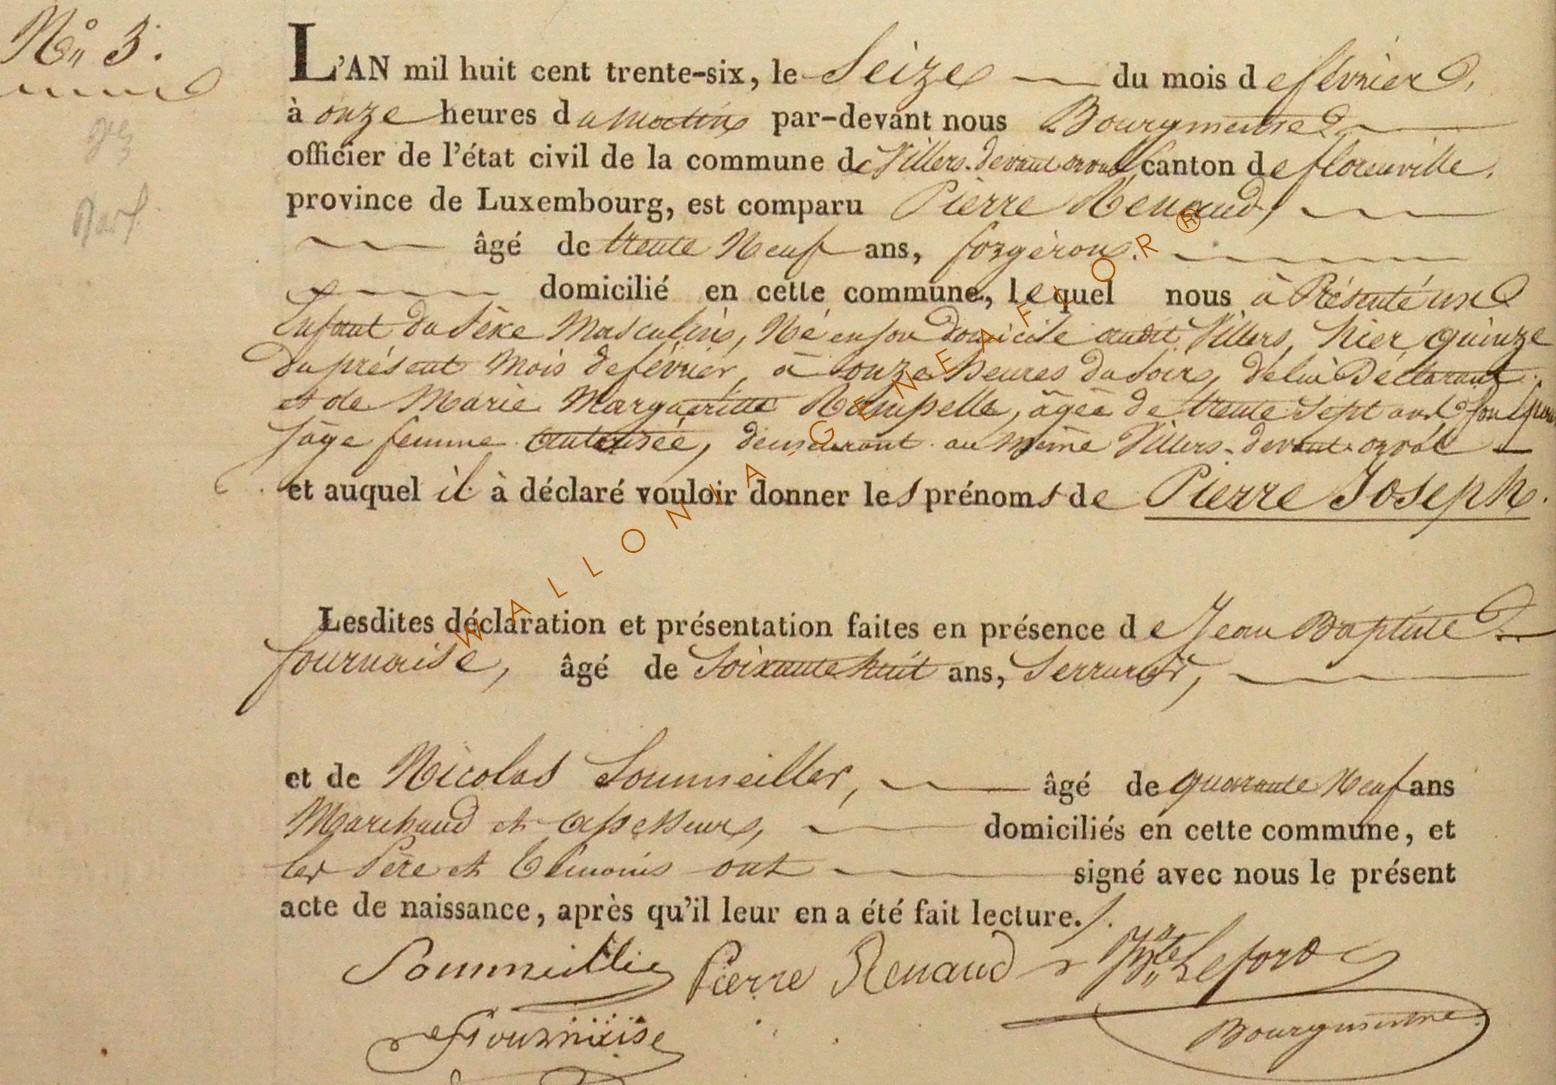 N° 3.
L'AN mil huit cent trente-six, le Seize du mois de février,
à onze heures du matin par-devant nous Bourgmestre
officier de l'état civil de la commune de Villers-devant-orval, canton de florenville,
province de Luxembourg, est comparu Pierre Renaud,
âgé de trente Neuf ans, forgeron.
domicilié en cette commune, lequel nous à Présenté un
Enfant du Sèxe Masculin, Né en son domicile audit Villers, hier quinze
du présent Mois de février, à onze heures du Soir, de lui Déclarant
et de Marie Margueritte, âgée de trente Sept ans
sage femme autorisée, demeurant au même Villers-devant-orval
et auquel il à déclaré vouloir donner les prénoms de Pierre Joseph.
Lesdites déclaration et présentation faites en présence de Jean Baptiste
fournaise, âgé de Soixante huit ans, Serrurier,
et de Nicolas Soumeiller, âgé de quarante Neuf ans
Marchand et assesseur, domiciliés en cette commune, et
les Père et Témoins ont signé avec nous le présent
acte de naissance, après qu'il leur en a été fait lecture./.
Pierre Renaud
Lefort
Fournaise
Bourgmestre
WALLONIA GENEAFLOR ®